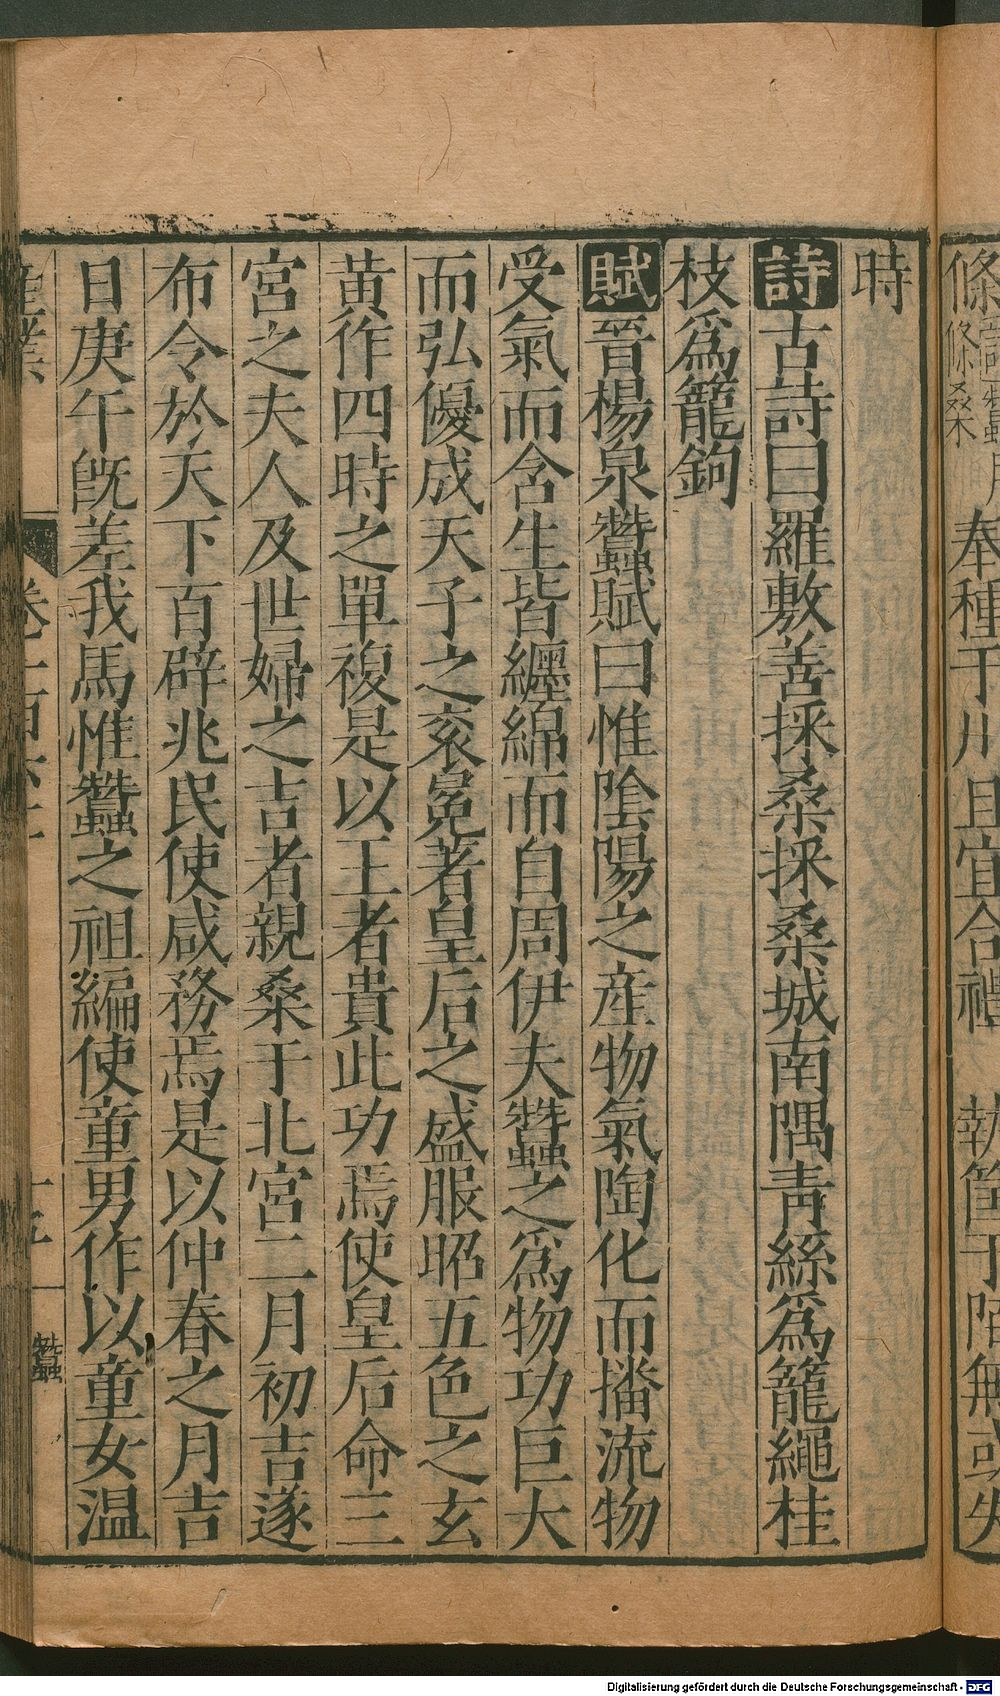 時
詩古詩曰羅敷善採桑採桑城南隅靑絲爲籠繩桂
枝爲籠鉤
賦晉楊泉蠶賦曰惟陰陽之産物氣陶化而播流物
受氣而含生皆纏綿而自周伊夫蠶之爲物功巨大
而弘優成天子之衮冕著皇后之盛服昭五色之玄
黃作四時之單複是以王者貴此功焉使皇后命三
宮之夫人及世婦之吉者親桑于北宮二月初吉遂
布令於天下百辟兆民使咸務焉是以仲春之月吉
日庚午旣差我馬惟蠶之祖編使童男作以童女温
蠶
奉種于
且宜合禮
執筐于陌無或失
Digitalisierung gefördert durch die Deutsche Forschungsgemeinschaft - DFG